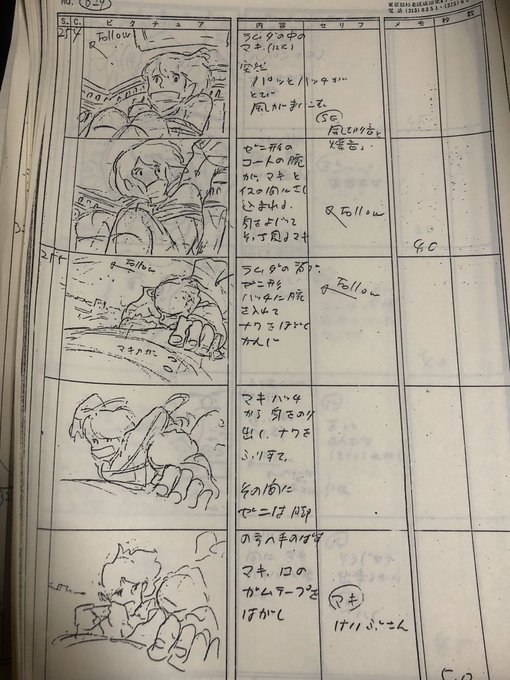 No. D-24
東京都杉並区成田東
電話(313)0251・(325)
S. C. ピクチュア 内容 セリフ メモ 秒数
254
Follow
ラムダの中の
マキ、
突然
パッとハッチが
とび
風がまいこむ
SE
風切り音と
爆音
ゼニ形の
コートの腕
が、マキと
イスの間にさし
込まれる。
身をよじって
その方見るマキ
Follow
4.0
255
Follow
マキのかげ
ラムダの首
ゼニ形
ハッチに腕
を入れて
ナワをほどく
かんじ
Follow
マキ ハッチ
から身をのり
出し、ナワを
ふりすて、
その間に
ゼニは脚
の方へ手のばす
マキ、口の
ガムテープを
はがし
マキ
けいぶさん
5.0